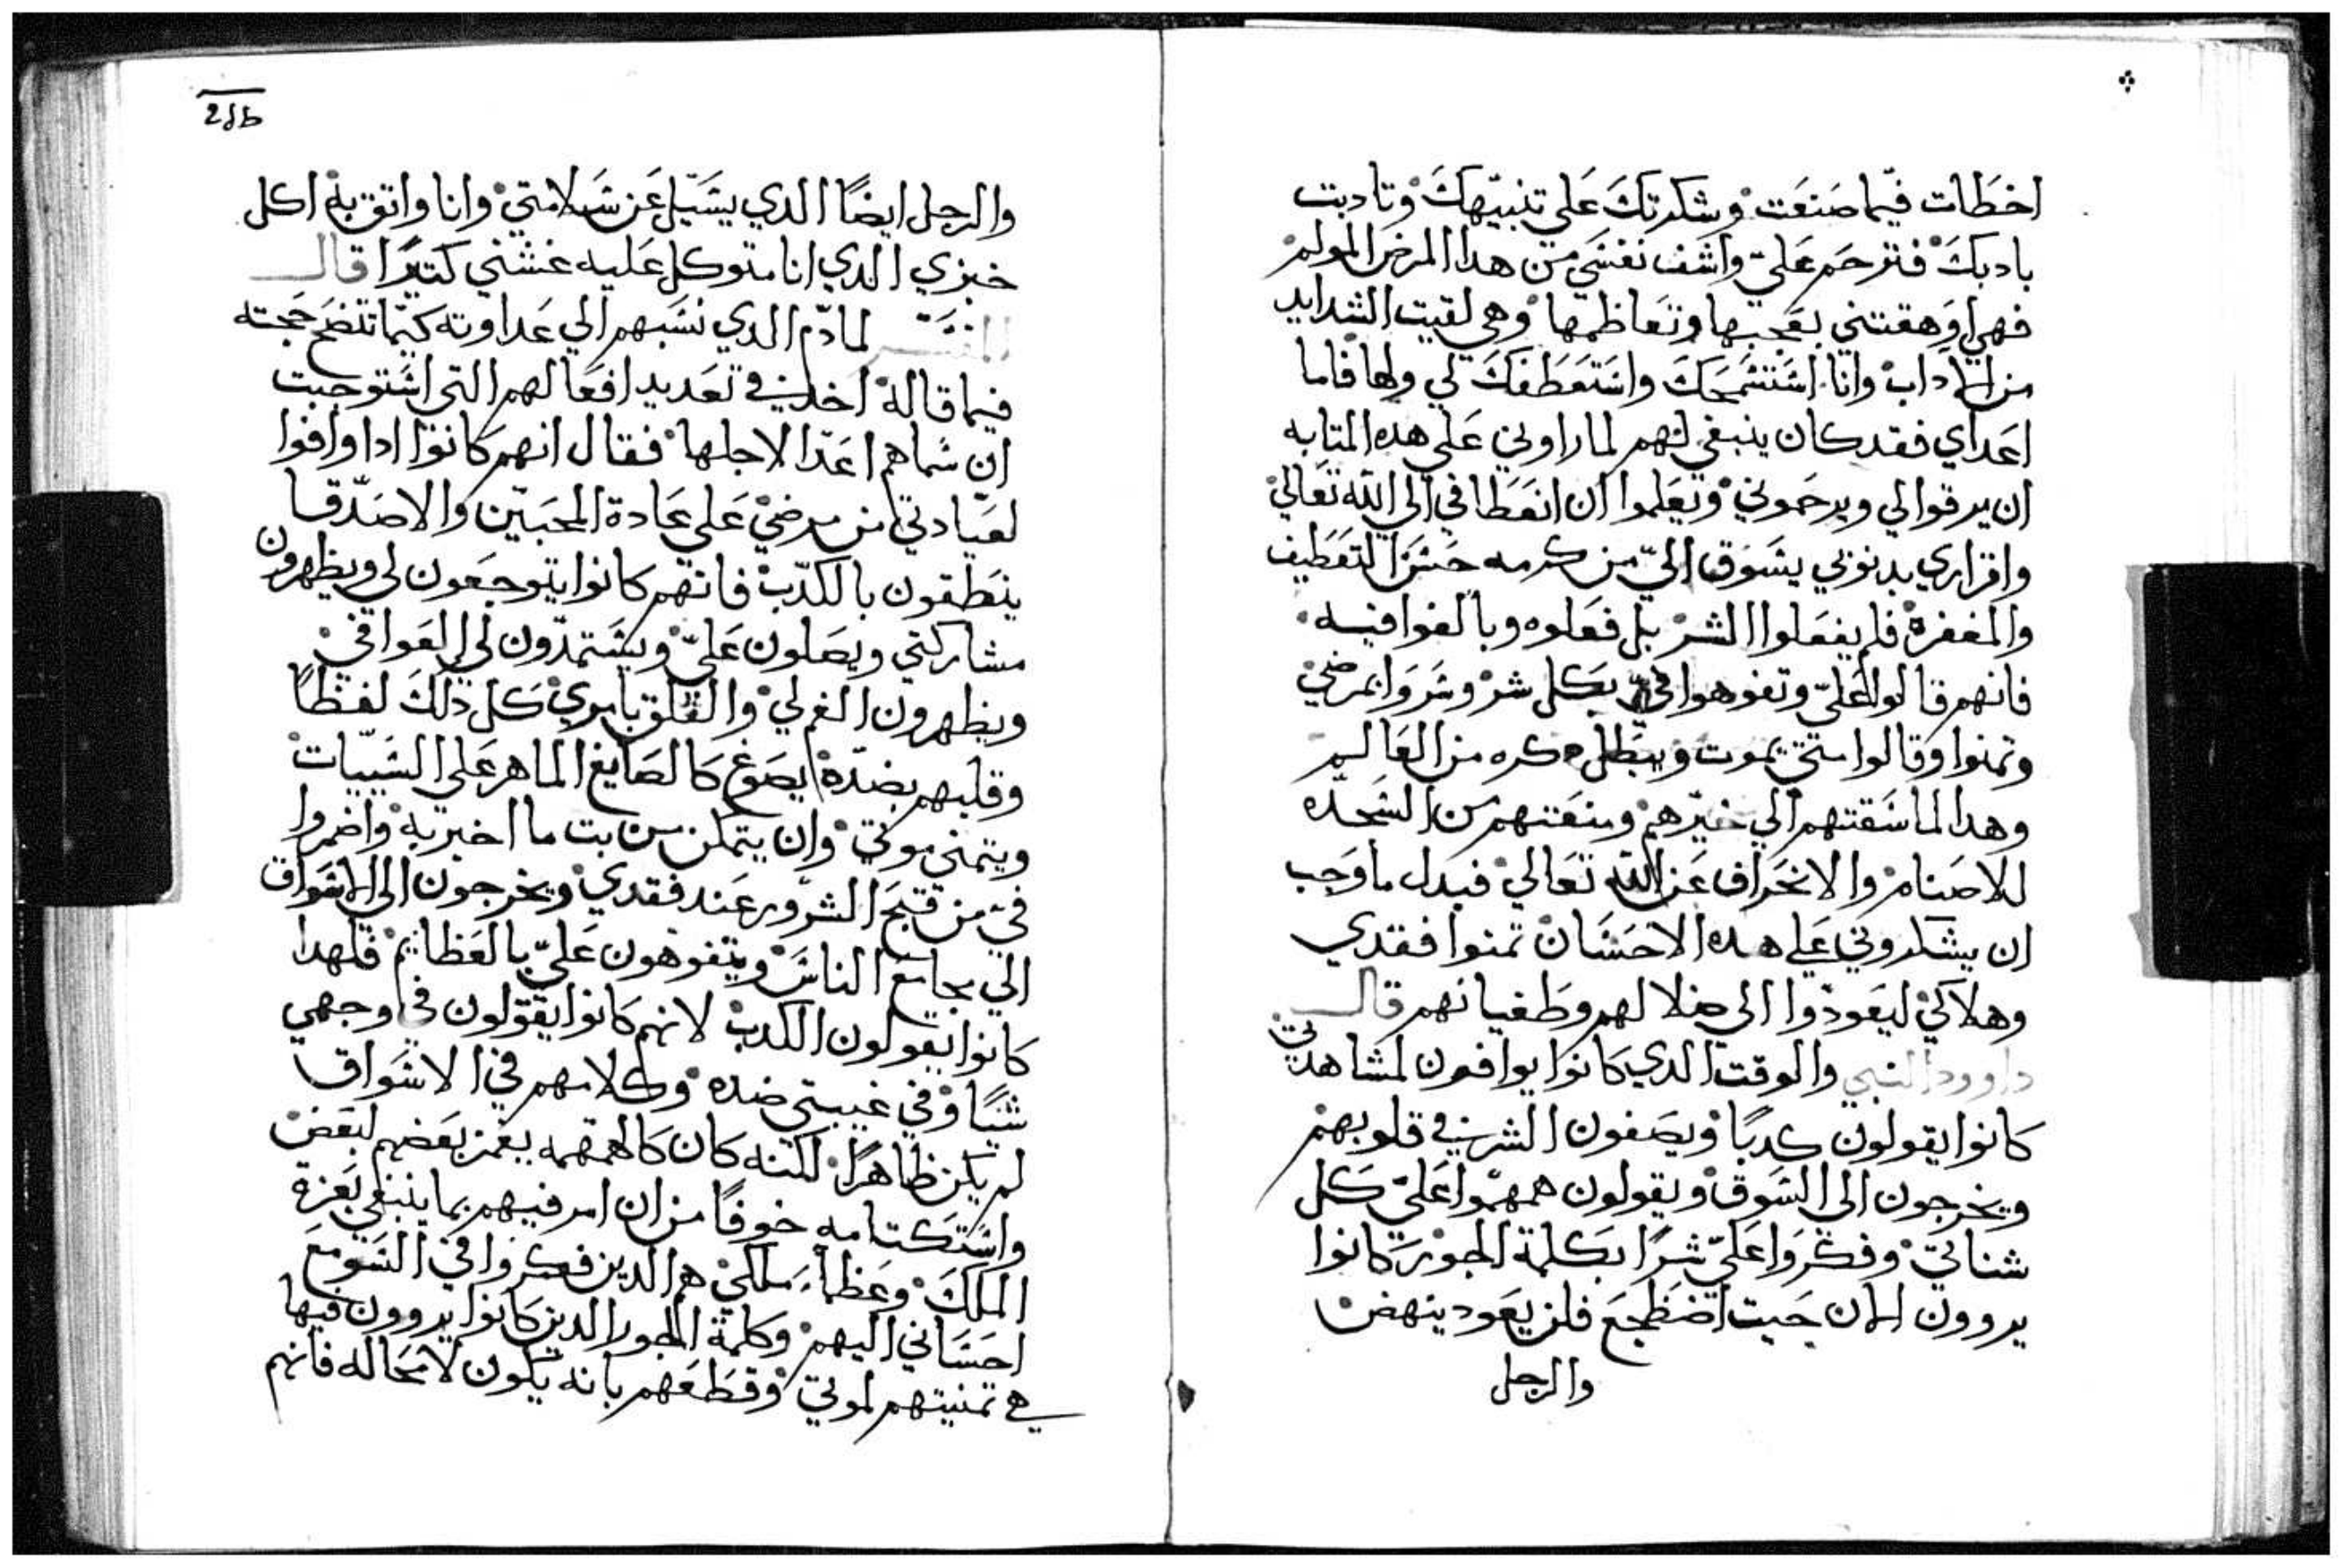 اخطات فيما صنعت وشكرتك على تنبيهك وتادبت
بادبك فترحم على واشف نفسي من هدا المرض المولم
فهي اوهقتني بعجبها وتعاظمها وهي لقيت الشدايد
من الاداب وانا استسمحك واستعطفك لي ولها فاما
اعداي فقد كان ينبغي لهم لما راوني على هده المتابه
ان يرقوا لي ويرحموني ويعلموا ان انعطافي الي الله تعالي
واقراري بدنوبي يسوق الي من كرمه حسن التعطيف
والمغفرة فلم يفعلوا الشر بل فعلوه وبالغوا فيه
فانهم قالوا علي وتفوهوا في بكل شر وسروا بمرضي
وتمنوا وقالوا متي يموت ويبطل دكره من العالم
وهدا لما سقتهم الي خيرهم ومنعتهم من السجده
للاصنام والانحراف عن الله تعالي فبدل ما وجب
ان يشكروني على هده الاحسان تمنوا فقدي
وهلاكي ليعودوا الي ضلالهم وطغيانهم قال
داوود النبي والوقت الدي كانوا يوافون لمشاهدتي
كانوا يقولون كدبا ويصفون الشر في قلوبهم
ويخرجون الى السوق ويقولون همهموا علي كل
شناتي وفكروا علي شرا بكلمة الجور كانوا
يروون ان حيت اضطجع فلن يعود ينهض
والرجل
2db
والرجل ايضا الدي يسيل عن سلامتي وانا واتق به اكل
خبزي الدي انا متوكل عليه غشني كتيرا قال
المفسر لما دم الدي نسبهم الي عداوته كيما تتضح حجته
فيما قاله اخد في تعديد افعالهم التي استوجبت
ان سماهم اعدا لاجلها فقال انهم كانوا ادا وافوا
لعيادتي من مرضي على عادة المحبين والاصدقا
ينطقون بالكدب فانهم كانوا يتوجعون لي ويظهرون
مشاركتي ويصلون علي ويستمدون لي العوافي
ويظهرون الغم لي والقلق بامري كل دلك لفظا
وقلبهم بضده يصوغ كالصايغ الماهر على السيات
ويتمنى موتي وان يتمكن من بت ما اخبر به واضمروا
في من قبح الشرور عند فقدي ويخرجون الي الاسواق
الي مجامع الناس ويتفوهون علي بالعظايم فلهدا
كانوا يقولون الكدب لانهم كانوا يقولون في وجهي
شيا وفي غيبتي ضده وكلامهم في الاسواق
لم يكن ظاهرا لكنه كان كالهمهمه يغمز بعضهم لبعض
واستكتامه خوفا من ان امر فيهم بما ينبغي بعزة
الملك وعظماء ملكي هم الدين فكروا في السو مع
احساني اليهم وكلمة الجور الدين كانوا يروون فيها
هي تمنيتهم لموتي وقطعهم بانه يكون لا محاله فانهم